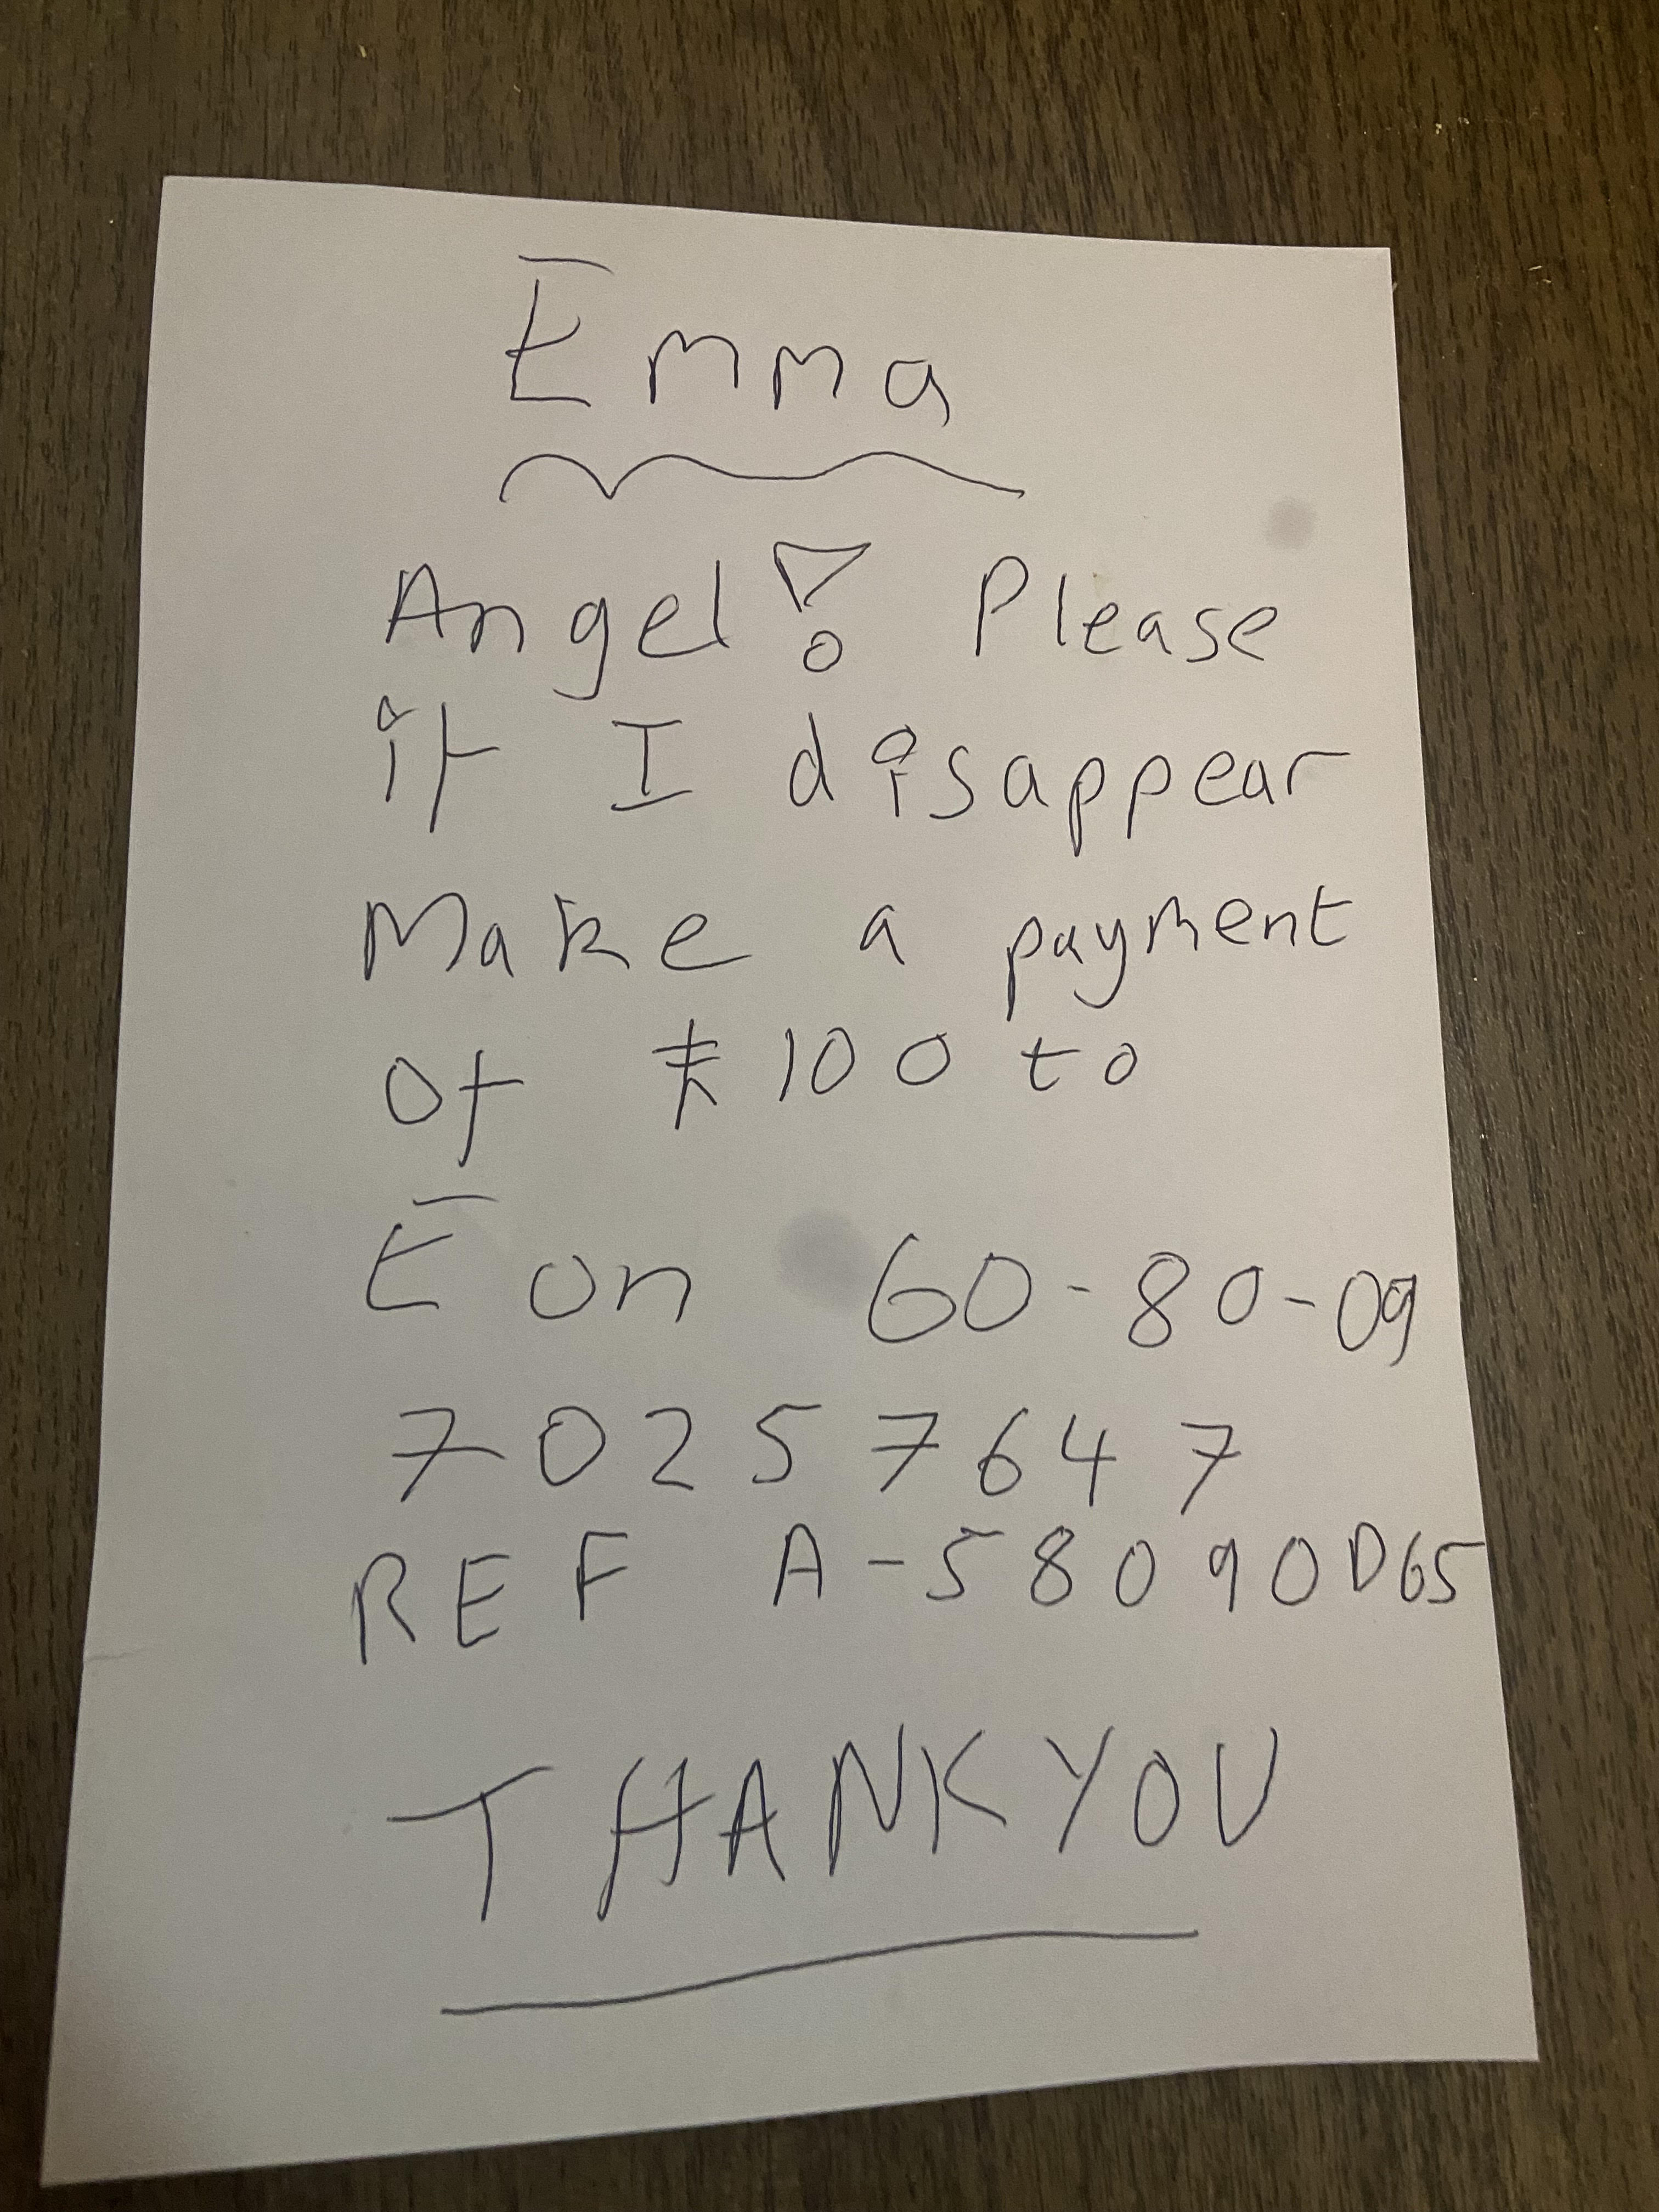 Emma
Angel! Please
if I disappear
Make a payment
of £100 to
Eon 60-80-09
70257647
REF A-58090D65
THANK YOU